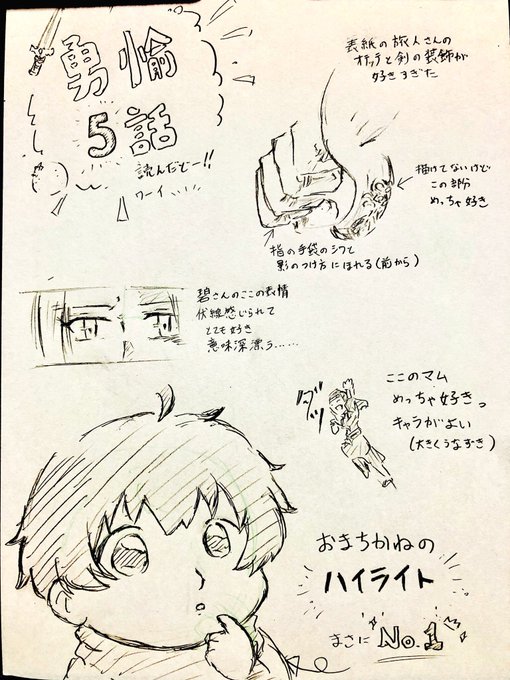 勇愉
5話
読んだどー!!
ワーイ
表紙の旅人さんの
オテテと剣の装飾が
好きすぎた
描けてないけど
この部分
めっちゃ好き
指の手袋のシワと
影のつけ方にほれる(前から)
碧さんのここの表情
伏線感じられて
とても好き
意味深漂う……
ダッ
ここのマム
めっちゃ好きっ
キャラがよい
(大きくうなずき)
おまちかねの
ハイライト
まさに No.1